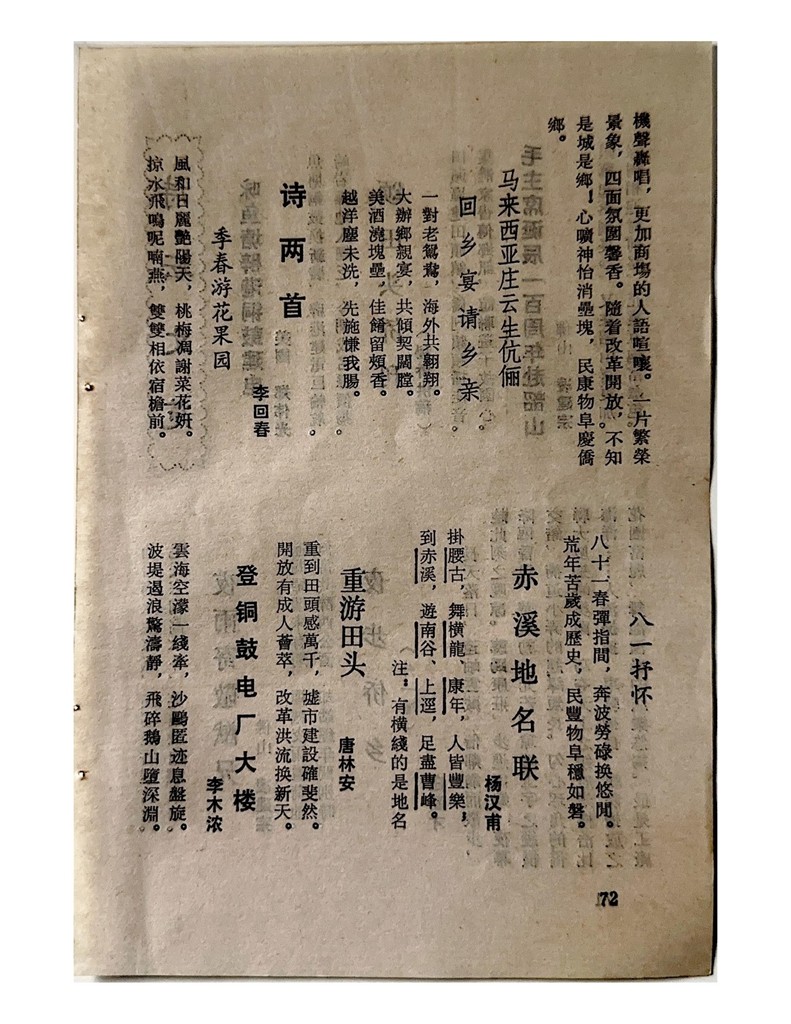 機聲轟唱，更加商場的人語喧嚷。一片繁榮
景象，四面氛圍馨香。隨着改革開放，不知
是城是鄉！心曠神怡消壘塊，民康物阜慶僑
鄉。
马来西亚庄云生伉俪
回乡宴请乡亲
一對老鴛鴦，海外共翺翔。
大辦鄉親宴，共傾契闊膛。
美酒澆塊壘，佳餚留頰香。
越洋塵未洗，先施慊我腸。
诗两首
李回春
季春游花果园
風和日麗艷陽天，桃梅凋謝菜花妍。
掠水飛鳴呢喃燕，雙雙相依宿檐前。
八一抒怀
八十一春彈指間，奔波勞碌换悠閒。
荒年苦歲成歷史，民豐物阜穩如磐。
赤溪地名联
杨汉甫
掛腰古，舞横龍、康年，人皆豐樂；
到赤溪，遊南谷、上逕，足盡曹峰。
注：有横綫的是地名
重游田头
唐林安
重到田頭感萬千，墟市建設確斐然。
開放有成人薈萃，改革洪流换新天。
登铜鼓电厂大楼
李木浓
雲海空濛一綫牽，沙鷗匿迹息盤旋。
波堤遏浪驚濤靜，飛碎鵝山墮深淵。
172